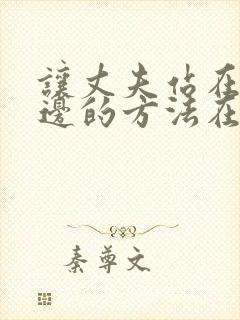 讓丈夫站在
邊的方法在
秦尊文